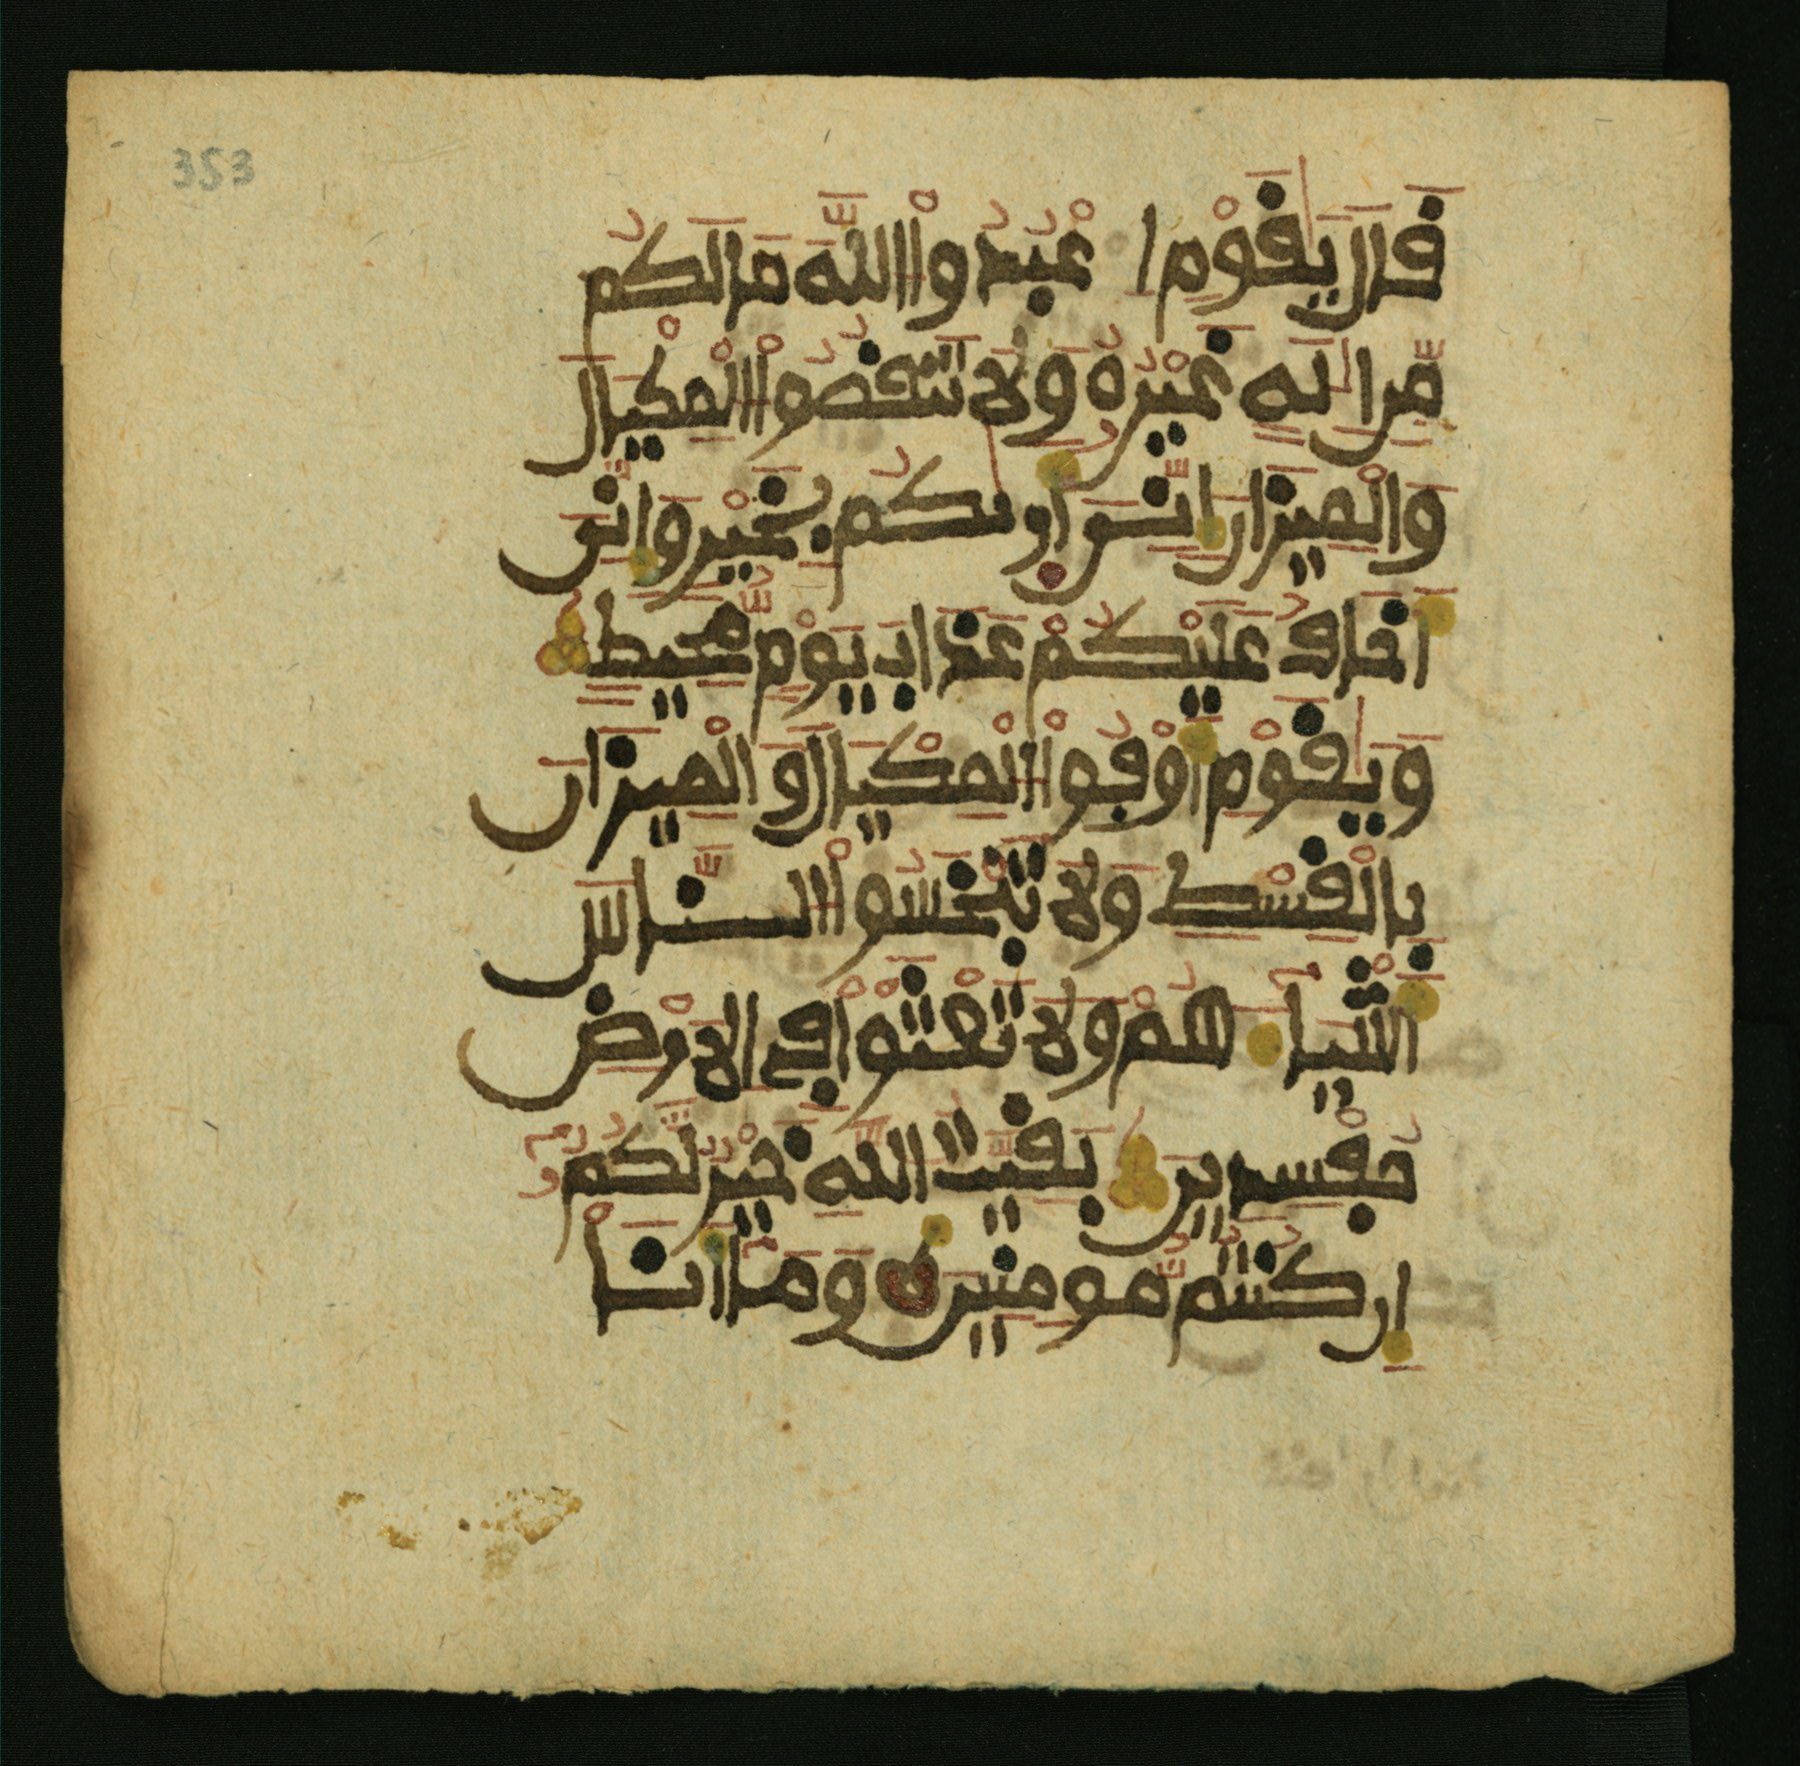 353
قَالَ يَٰقَوْمِ اعْبُدُواْ اللَّهَ مَا لَكُم
مِّنِ اِلَٰهٍ غَيْرُهُۥ وَلَا تَنقُصُواْ الْمِكْيَالَ
وَالْمِيزَانَ إِنِّي أَرٜىٰكُم بِخَيْرٍ وَإِنِّي
أَخَافُ عَلَيْكُمْ عَذَابَ يَوْمٍ مُّحِيطٍ
وَيَٰقَوْمِ أَوْفُواْ الْمِكْيَالَ وَالْمِيزَانَ
بِالْقِسْطِ وَلَا تَبْخَسُواْ النَّاسَ
أَشْيَآءَهُمْ وَلَا تَعْثَوْاْ فِي الَارْضِ
مُفْسِدِينَ بَقِيَّتُ اللَّهِ خَيْرٌ لَّكُمُۥٓ
إِن كُنتُم مُّومِنِينَ وَمَآ أَنَاْ